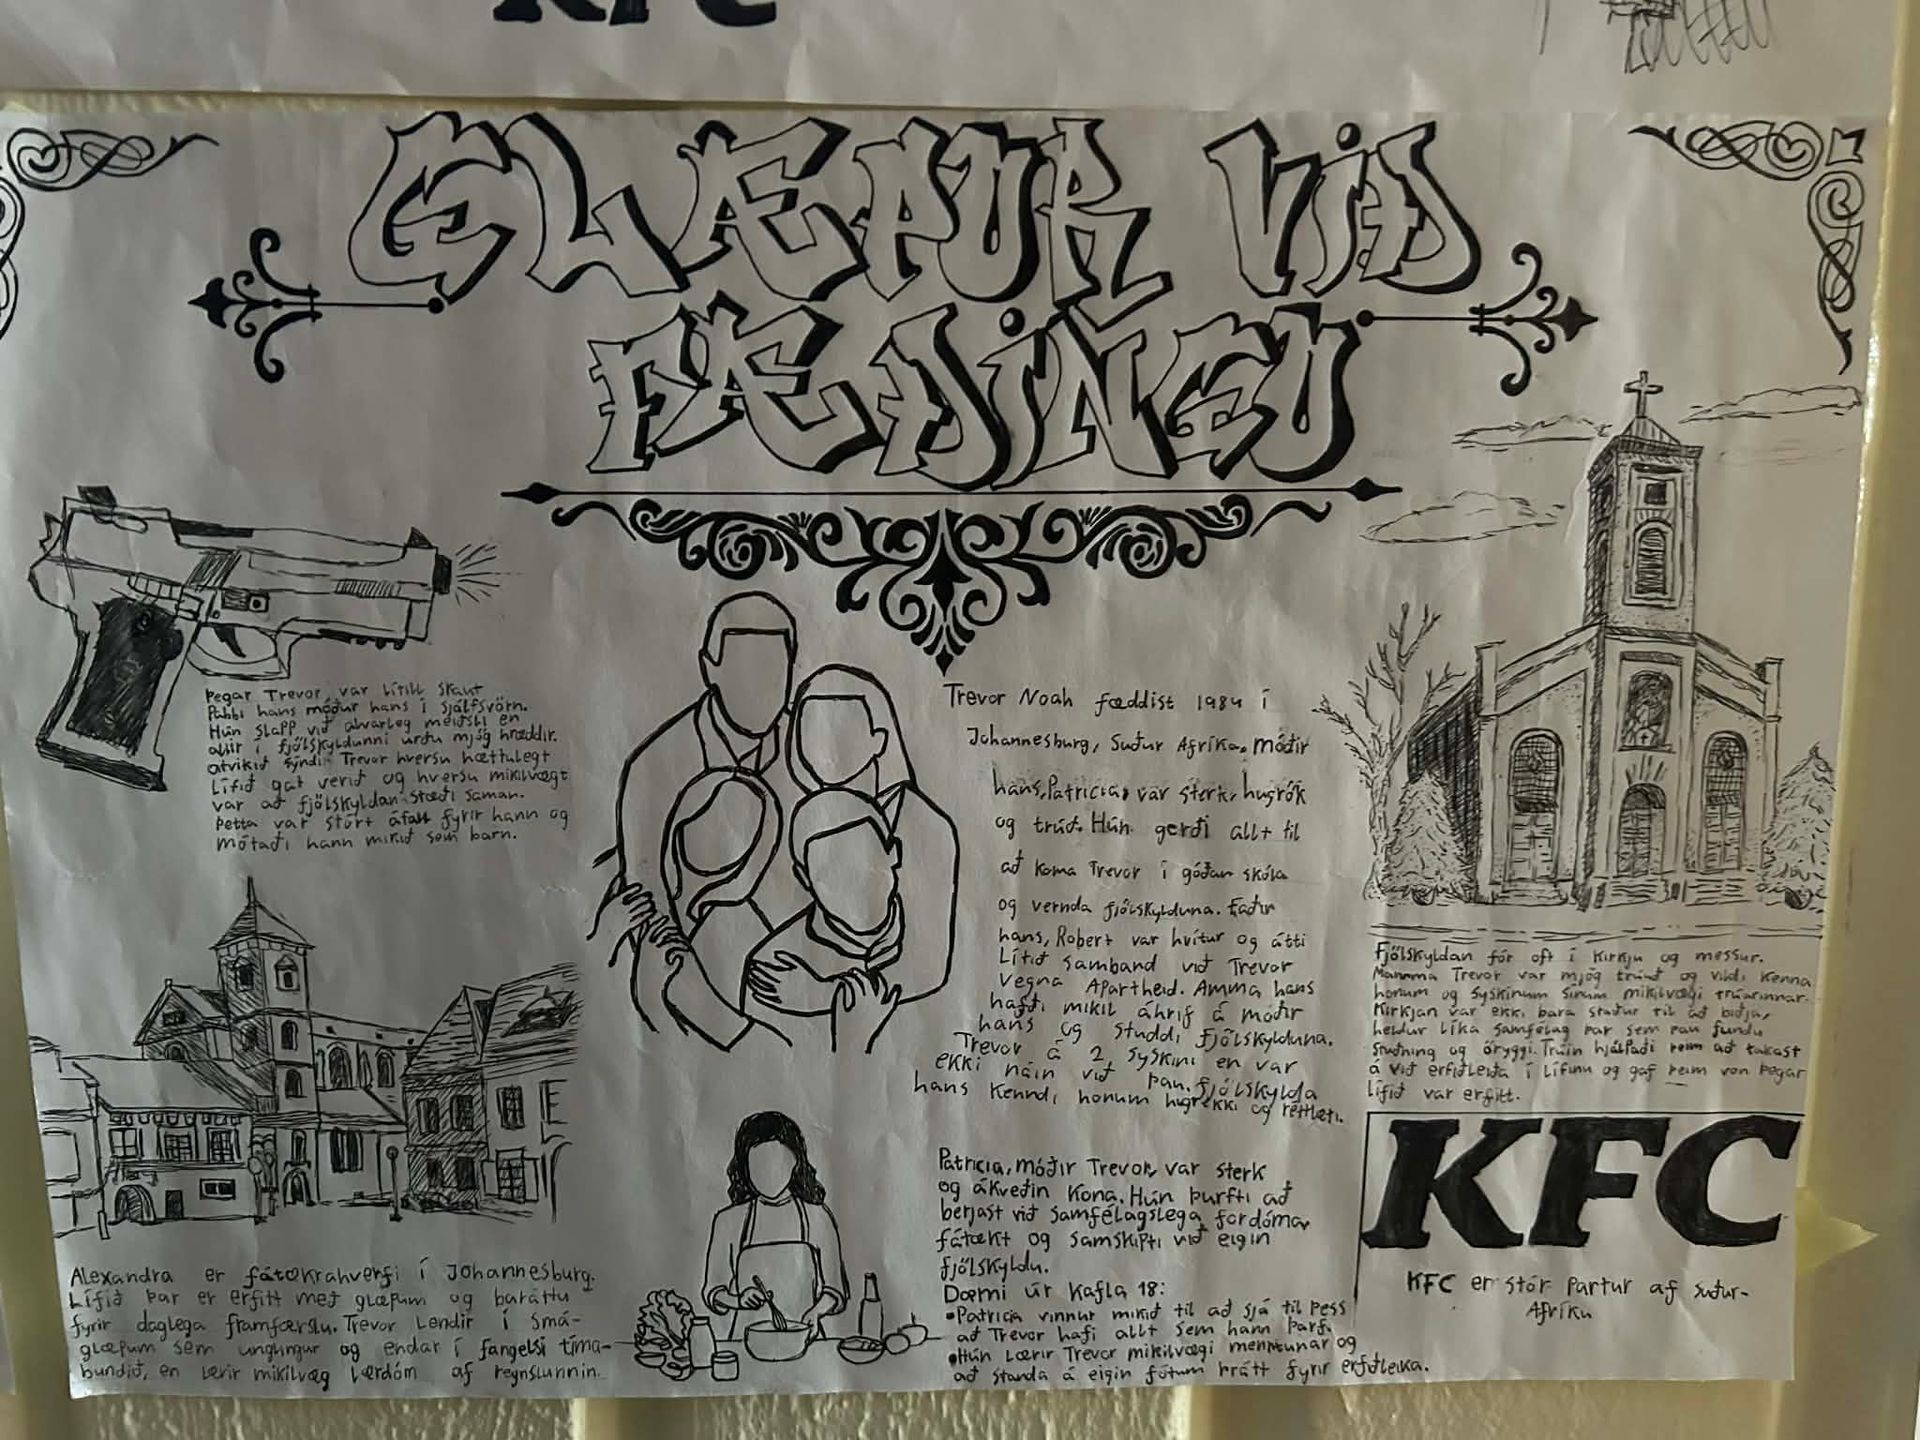 KFC
GLÆPUR VIÐ
FÆÐINGU
Þegar Trevor var lítill skaut
Pabbi hans móður hans í sjálfsvörn.
Hún slapp við alvarleg meiðsli en
allir í fjölskyldunni urðu mjög hræddir.
atvikið sýndi Trevor hversu hættulegt
Lífið gat verið og hversu mikilvægt
var að fjölskyldan stæði saman.
Þetta var stórt áfall fyrir hann og
mótaði hann mikið sem barn.
Trevor Noah fæddist 1984 í
Johannesburg, Suður Afríka. Móðir
hans, Patricia, var sterk, hugrök
og trúð. Hún gerði allt til
að koma Trevor í góðan skóla
og vernda fjölskylduna. Faðir
hans, Robert var hvítur og átti
Lítið samband við Trevor
vegna Apartheid. Amma hans
hafði mikil áhrif á móðir
hans og studdi fjölskylduna.
Trevor á 2 syskini en var
ekki náin við þau. fjölskylda
hans kenndi honum hugrekki og réttlæti.
Fjölskyldan fór oft í kirkju og messur.
Mamma Trevor var mjög trúuð og vildi kenna
honum og syskinum sinum mikilvægi trúarinnar.
Kirkjan var ekki bara staður til að biðja,
heldur líka samfélag þar sem þau fundu
Stuðning og öryggi. Trúin hjálpaði þeim að takast
á við erfiðleika í Lífinu og gaf þeim von þegar
Lífið var erfitt.
Alexandra er fátækrahverfi í Johannesburg.
Lífið þar er erfitt með glæpum og baráttu
fyrir daglega framfærslu. Trevor Lendir í smá-
glæpum sem unglingur og endar í fangelsi tíma-
bundið, en lærir mikilvæg lærdóm af reynslunnin.
Patricia, móðir Trevor, var sterk
og ákveðin kona. Hún þurfti að
berjast við samfélagslega fordóma
fátækt og samskipti við eigin
fjölskyldu.
Dæmi úr Kafla 18:
•Patricia vinnur mikið til að sjá til þess
að Trevor hafi allt sem hann þarf.
•Hún Lærir Trevor mikilvægi menntunar og
að standa á eigin fótum þrátt fyrir erfiðleika.
KFC
KFC er stór Partur af suður-
Afríku